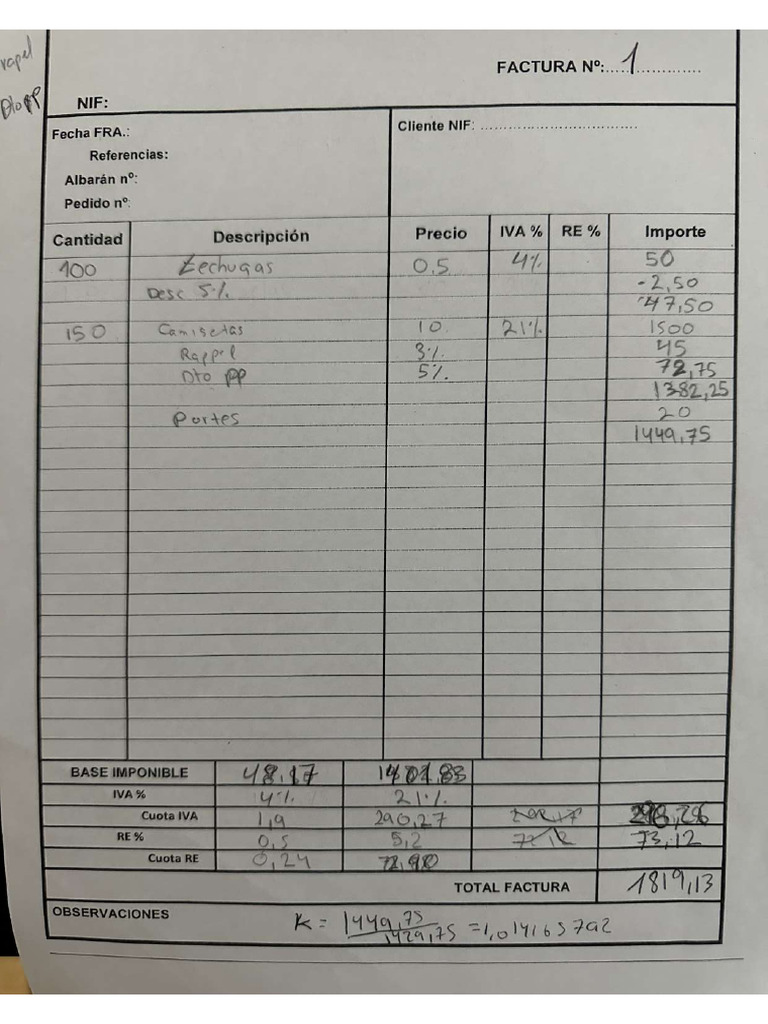 rapel
Dto pp
FACTURA Nº:.....1...............
NIF:
Fecha FRA.:
Cliente NIF: ....................................
Referencias:
Albarán nº:
Pedido nº:
Cantidad Descripción Precio IVA % RE % Importe
100 Lechugas 0.5 4% 50
Desc 5% -2,50
47,50
150 Camisetas 10 21% 1500
Rappel 3% 45
Dto pp 5% 72,75
1382,25
Portes 20
1449,75
BASE IMPONIBLE 48,17 1401,83
IVA % 4% 21%
Cuota IVA 1,9 290,27
RE % 0,5 5,2 73,12
Cuota RE 0,24
TOTAL FACTURA 1819,13
OBSERVACIONES
K = 1449,75 / 1429,75 = 1,014165792